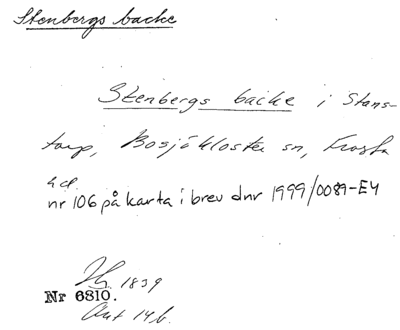 Stenbergs backe
Stenbergs backe i Stans-
torp, Bosjökloster sn, Frosta
hd.
nr 106 på karta i brev dnr 1999/0089-E4
1839
Nr 6810.
Akt 14b.